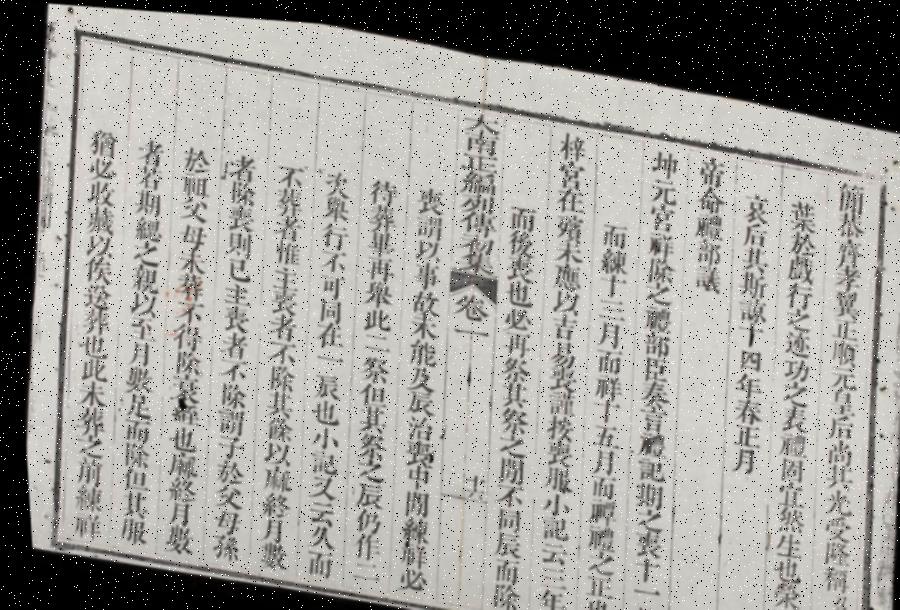 簡恭齊孝翼正順元皇后尚其光受隆稱
葉於戲行之迹功之表禮固宜然生也榮
哀后其斯歆十四年春正月
帝命禮部議
坤元宮祥除之禮部臣奏言禮記期之喪十一
而練十三月而祥十五月而禫禮之正也
梓宮在殯未應以吉易喪謹按喪服小記云三年
而後葬也必再祭其祭之間不同辰而除
大南正編列傳初集 卷一 十五
喪謂以事故未能及辰治葬中間練祥必
待葬畢再舉此二祭但其祭之辰仍作二
次舉行不可同在一辰也小記又云久而
不葬者惟主喪者不除其餘以麻終月數
者除喪則已主喪者不除謂子於父母孫
於祖父母未葬不得除衰絰也麻終月數
者若期親之親以下月數足而除但其服
猶必收藏以俟送葬也此未葬之前練祥